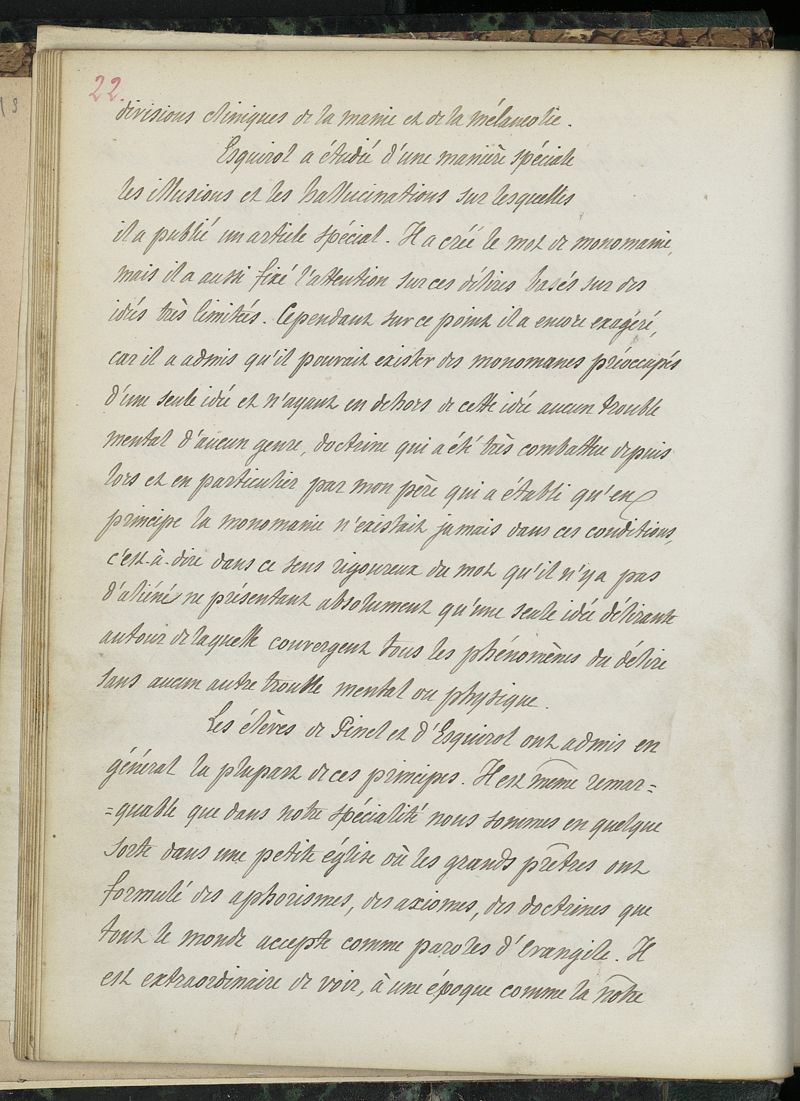 22
divisions cliniques de la manie et de la mélancolie.
Esquirol a étudié d'une manière spéciale
les illusions et les hallucinations sur lesquelles
il a publié un article spécial. Il a créé le mot de monomanie,
mais il a aussi fixé l'attention sur ces délires basés sur des
idées très limitées. Cependant sur ce point il a encore exagéré,
car il a admis qu'il pouvait exister des monomanes préoccupés
d'une seule idée et n'ayant en dehors de cette idée aucun trouble
mental d'aucun genre, doctrine qui a été très combattue depuis
lors et en particulier par mon père qui a établi qu'en
principe la monomanie n'existait jamais dans ces conditions,
c'est-à-dire dans ce sens rigoureux du mot qu'il n'y a pas
d'aliéné ne présentant absolument qu'une seule idée délirante
autour de laquelle convergent tous les phénomènes du délire
sans aucun autre trouble mental ou physique.
Les élèves de Pinel et d'Esquirol ont admis en
général la plupart de ces principes. Il est même remar=
=quable que dans notre spécialité nous sommes en quelque
sorte dans une petite église où les grands prêtres ont
formulé des aphorismes, des axiomes, des doctrines que
tout le monde accepte comme paroles d'Evangile. Il
est extraordinaire de voir, à une époque comme la nôtre